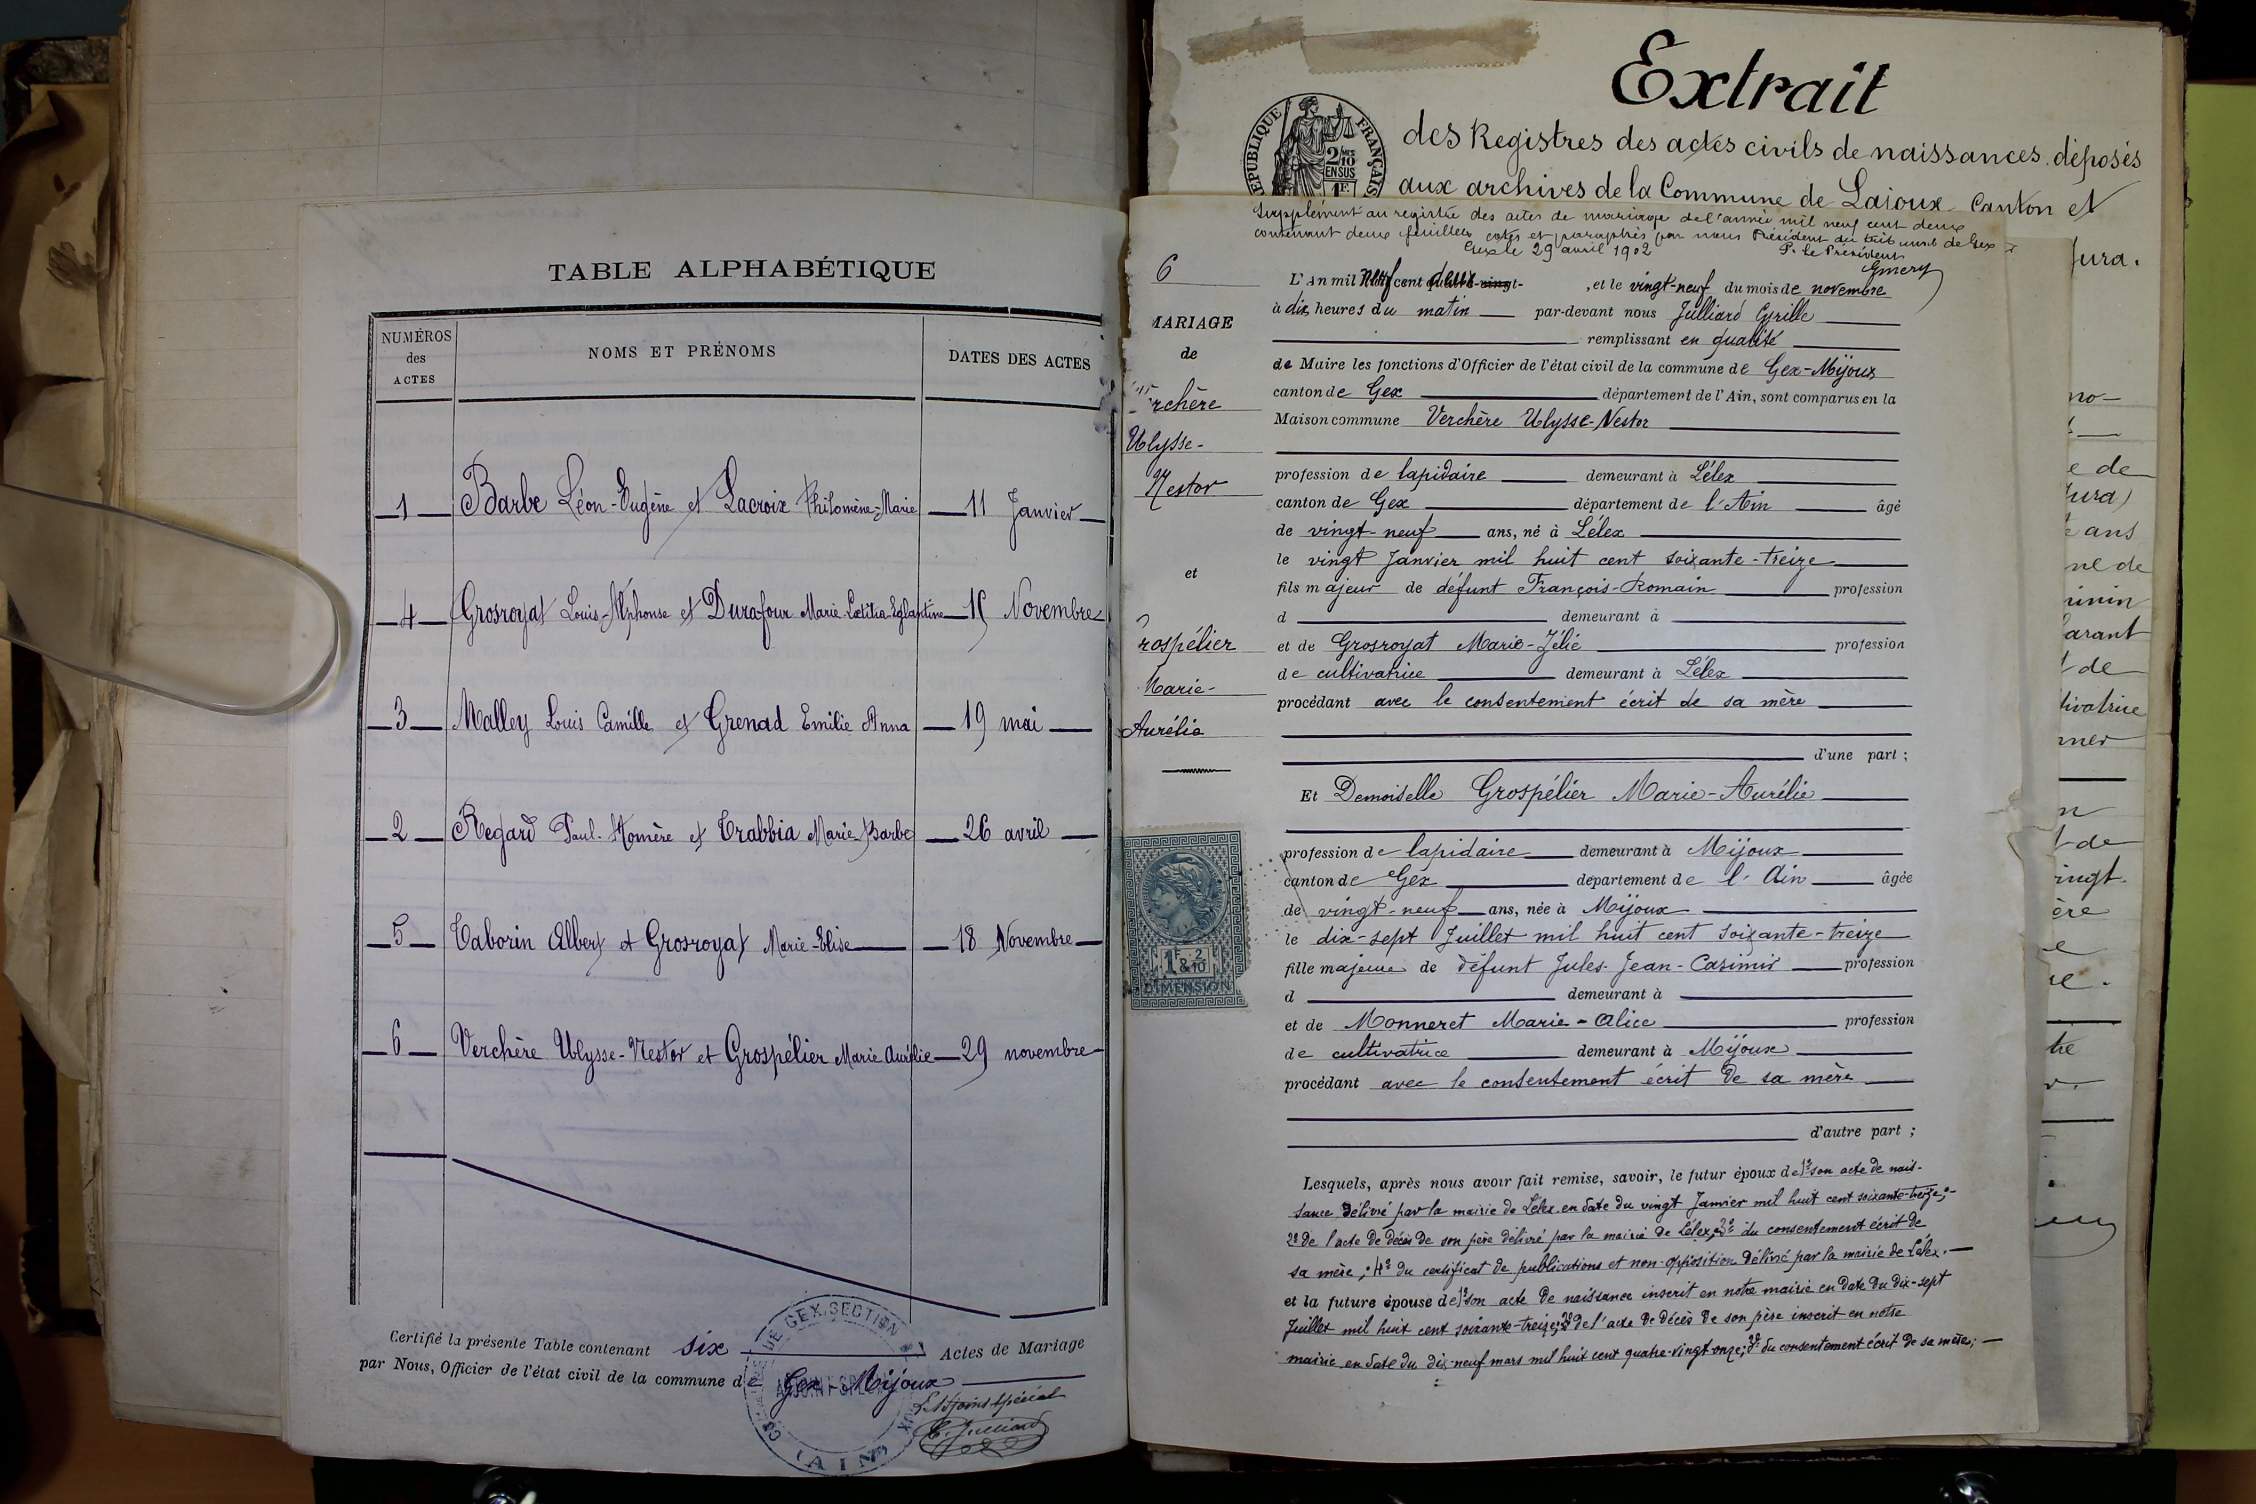 TABLE ALPHABÉTIQUE
NUMÉROS des ACTES NOMS ET PRÉNOMS DATES DES ACTES
1 Barbe Léon-Eugène et Lacroix Philomène-Marie 11 Janvier
4 Grosroyat Louis-Alphonse et Durafour Marie-Lætitia-Eglantine 15 Novembre
3 Malley Louis Camille et Grenad Emilie Anna 19 mai
2 Regard Paul-Homère et Trabbia Marie Barbe 26 avril
5 Taborin Albert et Grosroyat Marie-Elise 18 Novembre
6 Verchère Ulysse-Nestor et Grospélier Marie Aurélie 29 novembre
Certifié la présente Table contenant six Actes de Mariage
par Nous, Officier de l'état civil de la commune de Gex-Mijoux
L'Adjoint Spécial
C. Julliard
DE GEX, SECTION
AIN
Extrait
des Registres des actes civils de naissances déposés
aux archives de la Commune de Lajoux Canton et
RÉPUBLIQUE FRANÇAISE
2/10
EN SUS
1F.
Supplément au registre des actes de mariage de l'année mil neuf cent deux
contenant deux feuillets cotés et paraphés par nous Président du tribunal de Gex
Gex le 29 avril 1902 P. le Président
Emery
6
MARIAGE
de
rchère
Ulysse-
Nestor
et
rospélier
Marie-
Aurélie
L'An mil neuf cent deux, et le vingt-neuf du mois de novembre
à dix heures du matin par-devant nous Julliard Cyrille
remplissant en qualité
de Maire les fonctions d'Officier de l'état civil de la commune de Gex-Mijoux
canton de Gex département de l'Ain, sont comparus en la
Maison commune Verchère Ulysse-Nestor
profession de lapidaire demeurant à Lélex
canton de Gex département de l'Ain âgé
de vingt-neuf ans, né à Lélex
le vingt Janvier mil huit cent soixante-treize
fils majeur de défunt François-Romain profession
d demeurant à
et de Grosroyat Marie-Zélie profession
de cultivatrice demeurant à Lélex
procédant avec le consentement écrit de sa mère
d'une part ;
Et Demoiselle Grospélier Marie-Aurélie
profession de lapidaire demeurant à Mijoux
canton de Gex département de l'Ain âgée
de vingt-neuf ans, née à Mijoux
le dix-sept Juillet mil huit cent soixante-treize
fille majeure de défunt Jules-Jean-Casimir profession
d demeurant à
et de Monneret Marie-Alice profession
de cultivatrice demeurant à Mijoux
procédant avec le consentement écrit de sa mère
d'autre part ;
Lesquels, après nous avoir fait remise, savoir, le futur époux de 1º son acte de nais-
sance délivré par la mairie de Lélex en date du vingt Janvier mil huit cent soixante-treize;-
2º de l'acte de décès de son père délivré par la mairie de Lélex; 3º du consentement écrit de
sa mère; 4º du certificat de publications et non-opposition délivré par la mairie de Lélex.
et la future épouse de 1º son acte de naissance inscrit en notre mairie en date du dix-sept
Juillet mil huit cent soixante-treize; 2º de l'acte de décès de son père inscrit en notre
mairie en date du dix-neuf mars mil huit cent quatre-vingt onze; 3º du consentement écrit de sa mère;
1F & 2/10
DIMENSION
Jura.
no-
e de
Jura)
ans
ne de
arant
t de
tivatrice
t de
vingt
ère